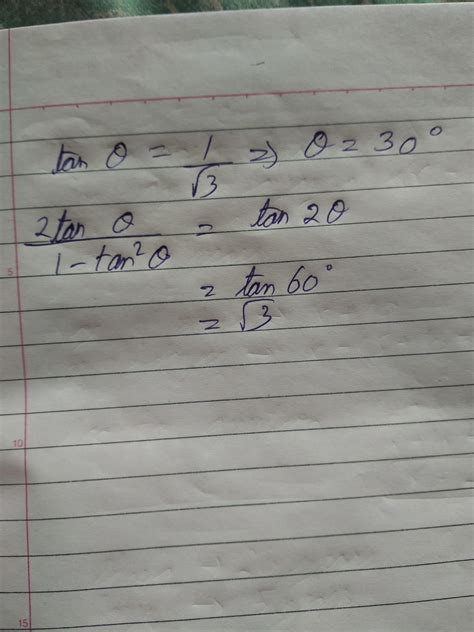 tan θ = 1/√3 => θ = 30°
2tan θ / 1 - tan²θ = tan 2θ
5
= tan 60°
= √3
10
15